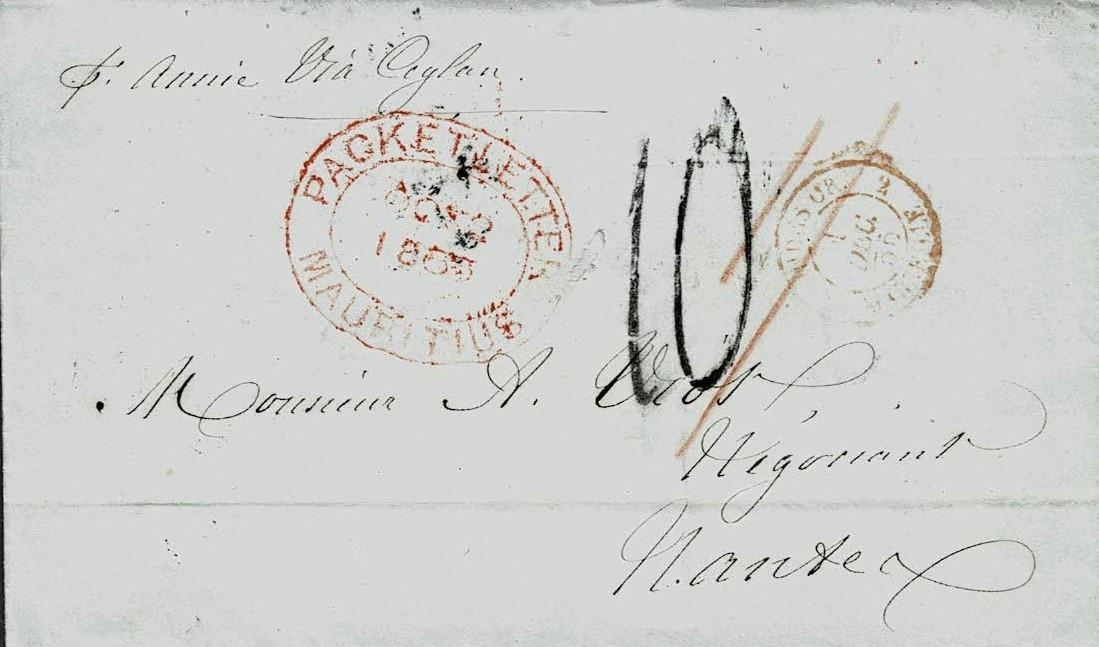 pr. Annie Viâ Ceylan.
PACKET LETTER
OC
185
MAURITIUS
10
2
DEC.
Monsieur A. Viot
Négociant
Nantes